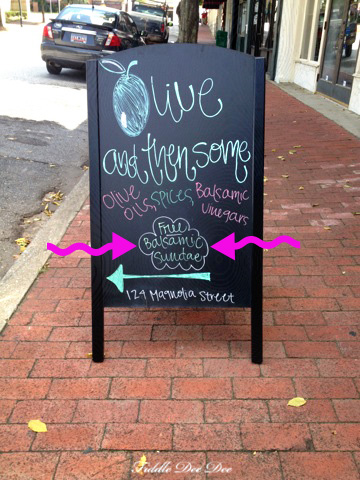 Olive
and then some
Olive Oils, Spices, Balsamic Vinegars
Free
Balsamic
Sundae
124 Magnolia Street
Fiddle Dee Dee